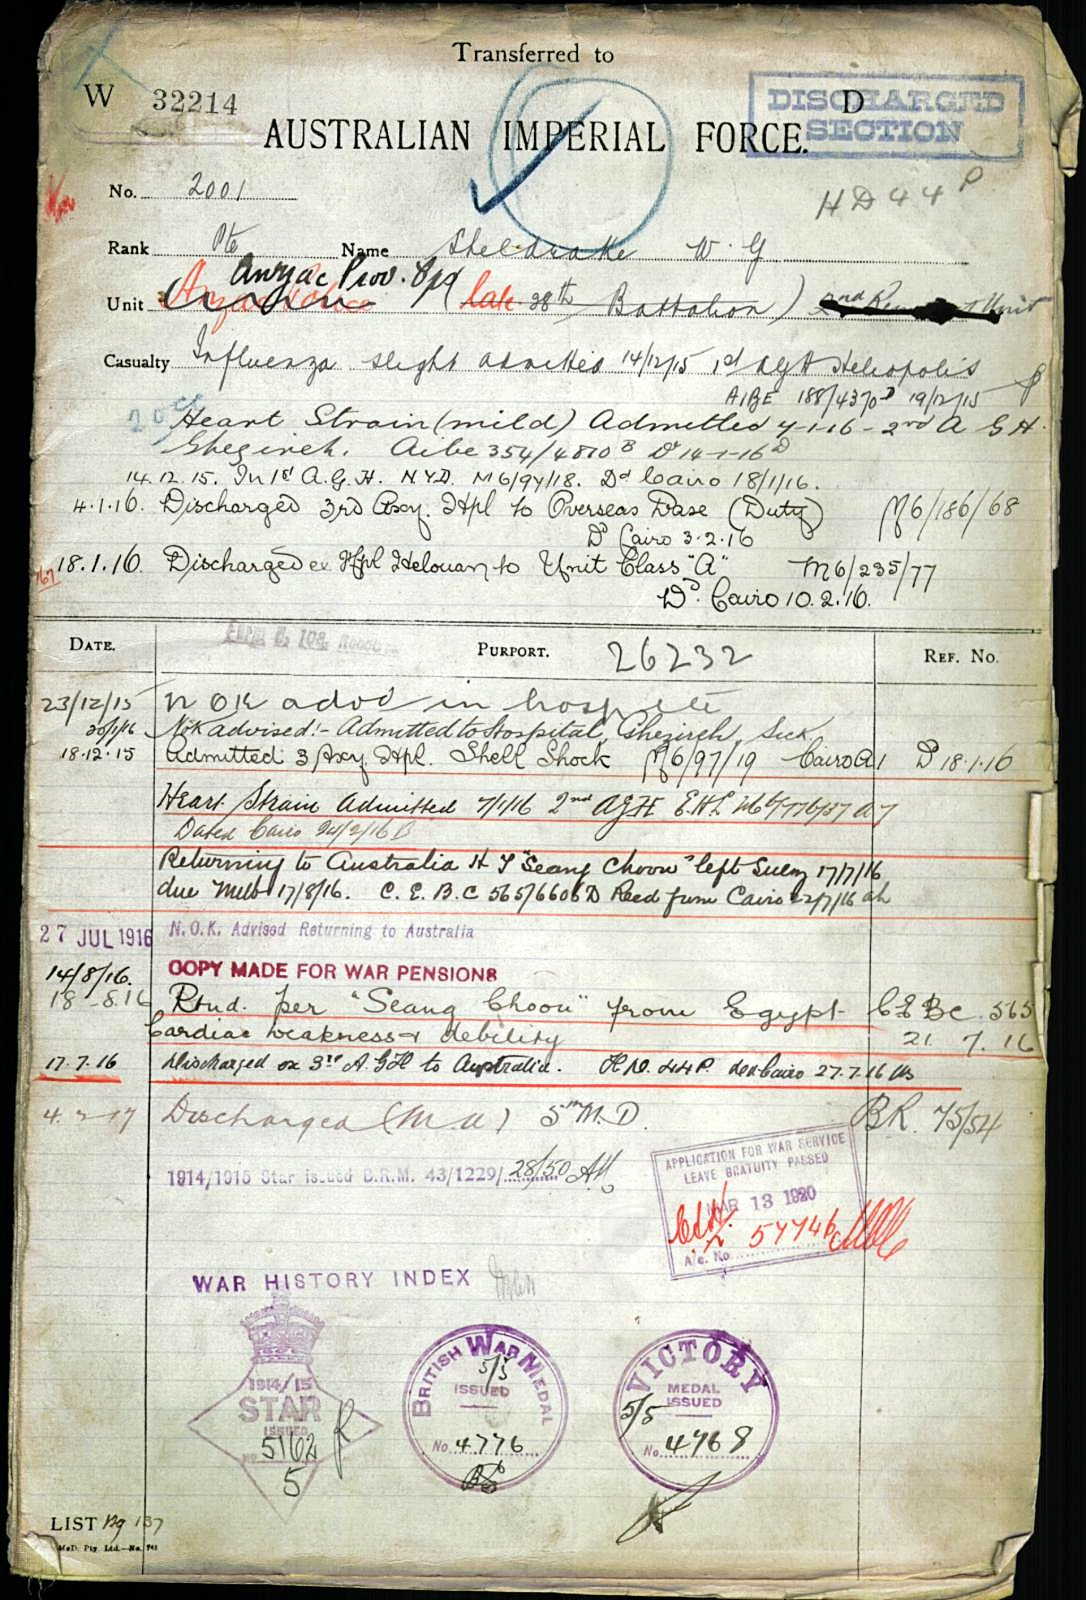 Transferred to
W 32214
DISCHARGED D
SECTION
AUSTRALIAN IMPERIAL FORCE.
No. 2001
HD 44 P
Rank Pte Name Sheldrake W. G
Anzac Prov. Cpl
Unit (late 28th Battalion)
Casualty Influenza slight admitted 14/12/15 1st AGH Heliopolis
AIBE 188/4370 D 19/12/15
Heart Strain (mild) Admitted 4-1-16 - 2nd A G H.
Ghezireh. Aibe 354/4810 B D 14-1-16
14.12.15. In 1st A.G.H. N.Y.D. M6/97/18. Dd Cairo 18/1/16.
4.1.16. Discharged 3rd Axy. Hpl to Overseas Base (Duty) M6/186/68
Dd Cairo 3.2.16
18.1.16. Discharged ex Hpl Helouan to Unit Class "A" M6/235/77
Dd. Cairo 10.2.16.
DATE. PURPORT. 26232 REF. No.
23/12/15 N OK advd in hospital
20/1/16 NoK advised:- Admitted to Hospital, Ghezireh, Sick
18.12.15 Admitted 3 Axy. Hpl. Shell Shock M6/97/19 Cairo D 18.1.16
Heart Strain Admitted 7/1/16 2nd AGH
Dated Cairo 24/2/16
Returning to Australia H T "Seang Choon" left Suez 17/7/16
due Melb 17/8/16. C.E.B.C 565/6606 D Recd from Cairo 22/7/16
27 JUL 1916 N.O.K. Advised Returning to Australia
14/8/16. COPY MADE FOR WAR PENSIONS
18-8.16 Rtnd. per "Seang Choon" from Egypt CEBC. 565
Cardiac weakness & debility 21.7.16
17.7.16 Discharged ex 3rd A.G.H to Australia. H.D. 44 P. Cairo 27.7.16
4.2.17 Discharged (M U) 5th M.D. BR. 75/54
APPLICATION FOR WAR SERVICE
LEAVE GRATUITY PASSED
1914/1915 Star issued B.R.M. 43/1229/ 28/50
MAR 13 1920
A/c. No. 57746
WAR HISTORY INDEX
1914/15
STAR
ISSUED
No 5162
5
BRITISH WAR MEDAL
5/5
ISSUED
No. 4776
VICTORY
MEDAL
ISSUED
5/5
No. 4768
LIST Bg 137
McD. Pty. Ltd.—No. 741